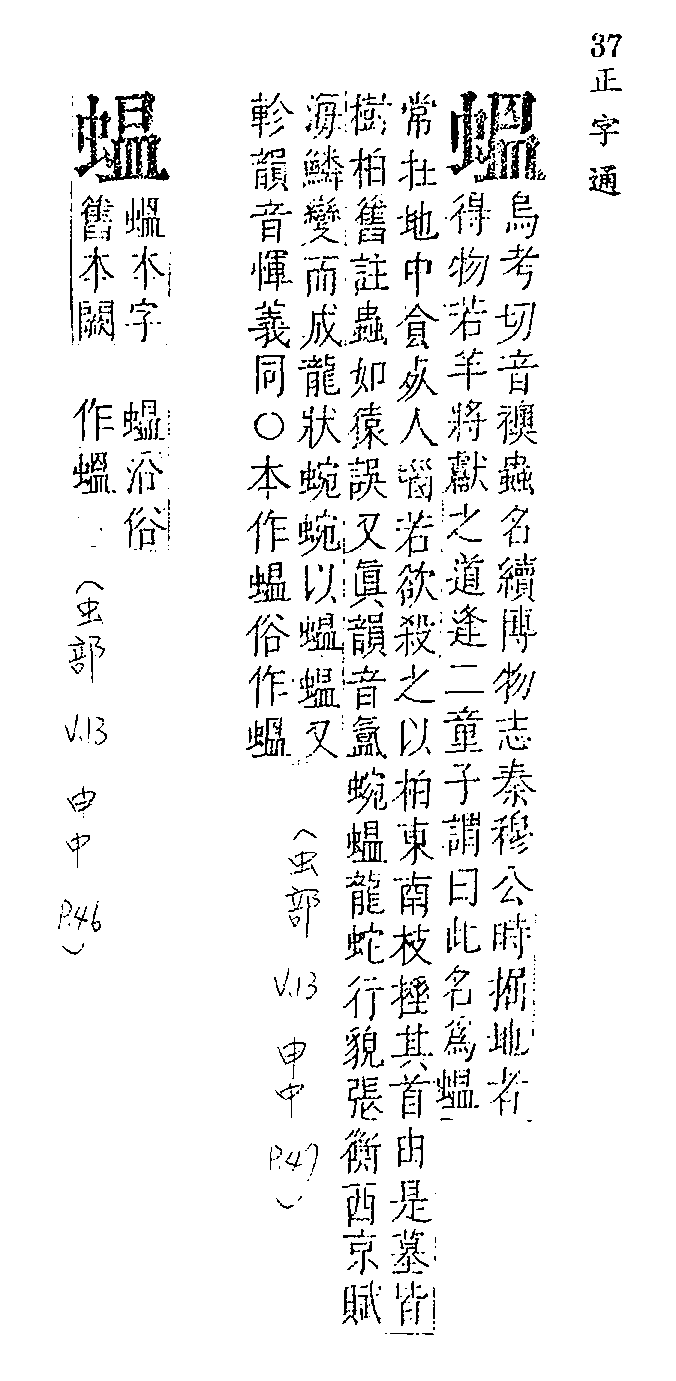 37 正字通
蝹 烏考切音襖蟲名續博物志秦穆公時掘地者
得物若羊將獻之道逢二童子謂曰此名爲蝹
常在地中食𣦸人腦若欲殺之以柏東南枝捶其首由是墓皆
樹柏舊註蟲如猿誤又眞韻音氳蜿蝹龍蛇行貌張衡西京賦
海鱗變而成龍狀蜿蜿以蝹蝹又
軫韻音惲義同○本作蝹俗作蝹
(虫部 V.13 申中 P.47)
蝹 蝹本字 蝹沿俗
舊本闕 作蝹
(虫部 V.13 申中 P.46)